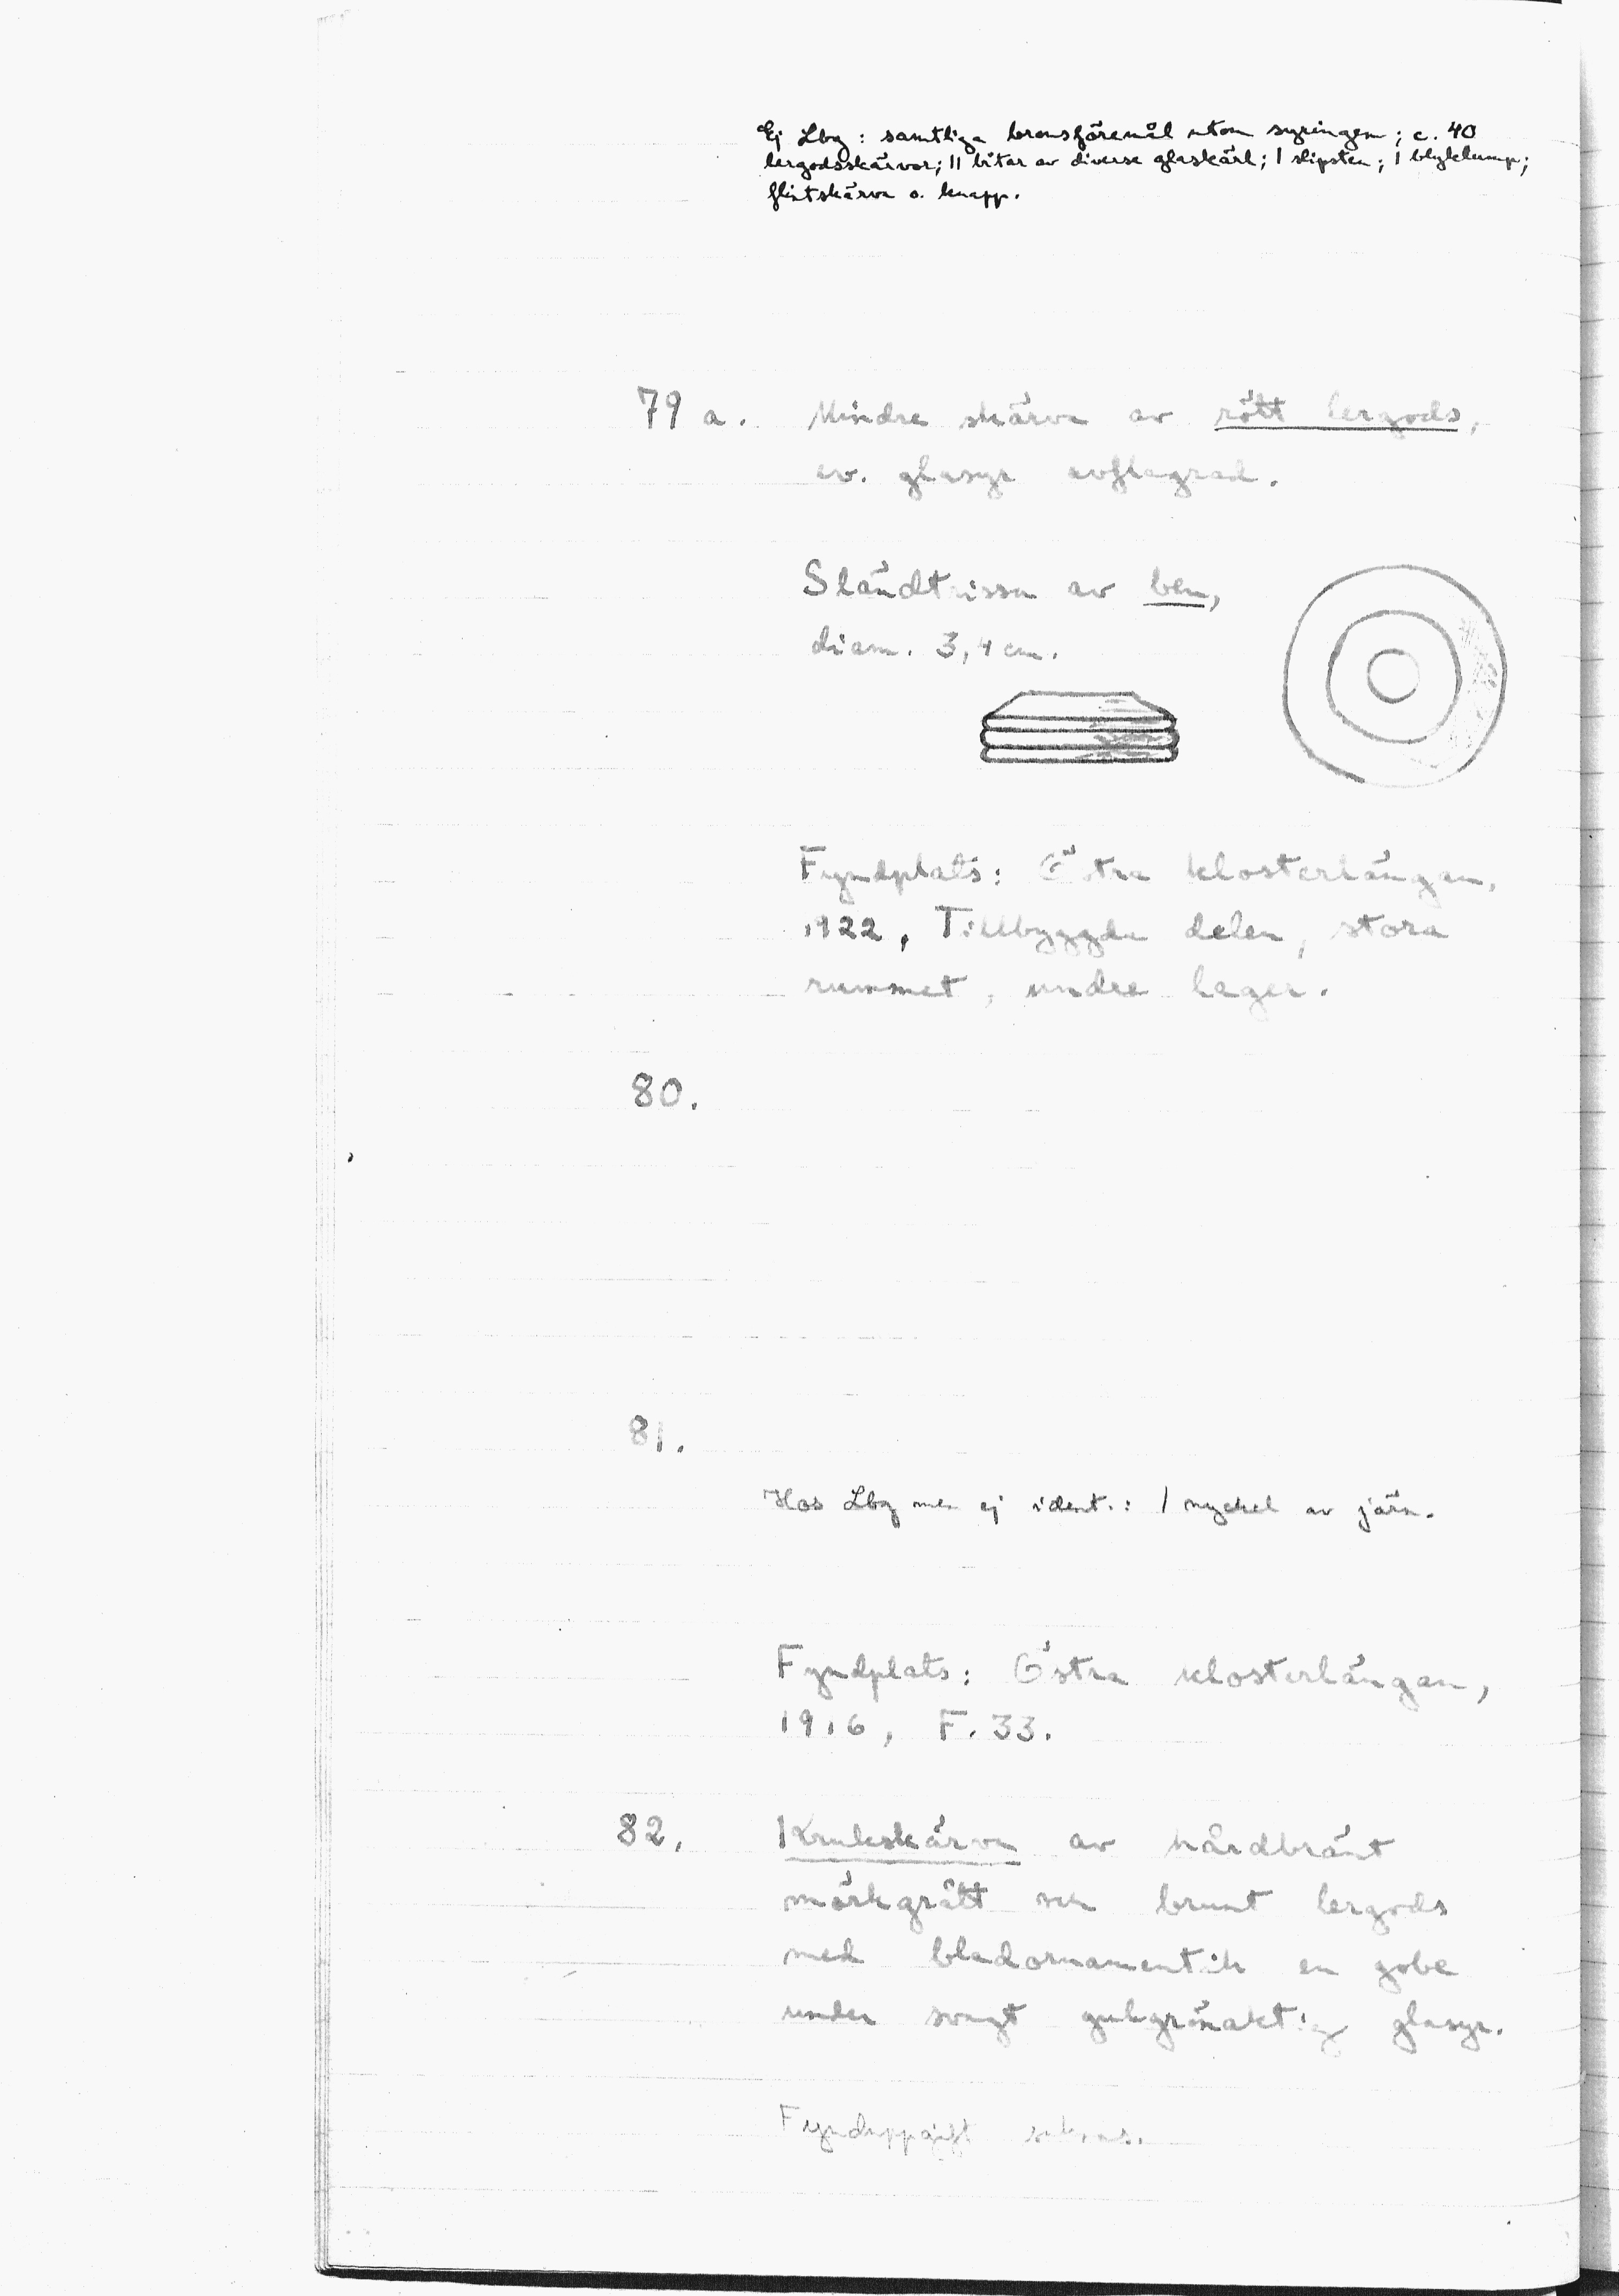 Ej Lbg: samtliga bronsföremål utom syringen; c. 40
lergodsskärvor; 11 bitar av diverse glaskärl; 1 slipsten; 1 blyklump;
flintskärva o. knapp.
79 a. Mindre skärva av rött lergods,
ev. glasyr avflagrad.
Sländtrissa av ben,
diam. 3,4 cm.
Fyndplats: Östra klosterlängan,
1922, Tillbyggda delen, stora
rummet, undre lager.
80.
81.
Hos Lbg men ej ident.: 1 nyckel av järn.
Fyndplats: Östra klosterlängan,
1916, F. 33.
82. Krukskärva av hårdbränt
mörkgrått och brunt lergods
med bladornamentik en gobe
under svagt gulgrönaktig glasyr.
Fynduppgift saknas.